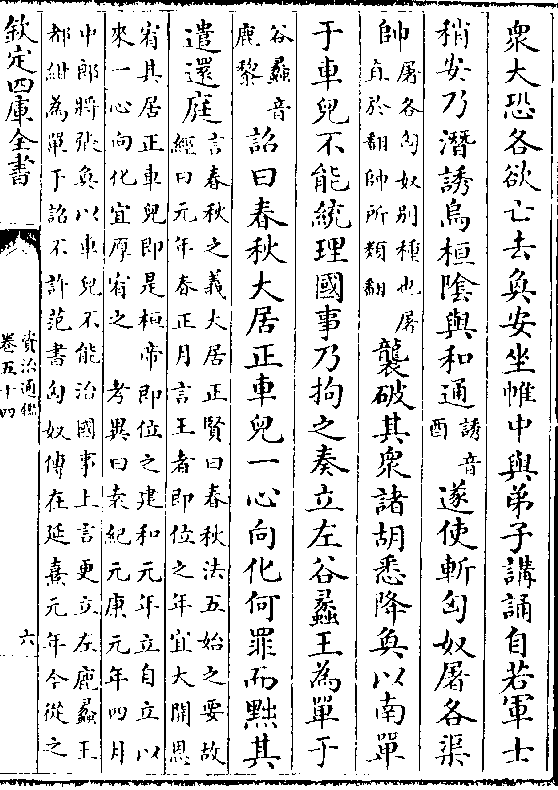 衆大恐各欲亡去奐安坐帷中與弟子講誦自若軍士
稍安乃潛誘烏桓隂與和通誘音酉遂使斬匈奴屠各渠
帥屠各匈奴別種也屠直於翻帥所類翻襲破其衆諸胡悉降奐以南單
于車兒不能統理國事乃拘之奏立左谷蠡王為單于
谷蠡音鹿黎詔曰春秋大居正車兒一心向化何罪而黜其
遣還庭言春秋之義大居正賢曰春秋法五始之要故
經曰元年春正月言王者即位之年宜大開恩
宥其居正車兒即是桓帝即位之建和元年立自立以
來一心向化宜厚宥之 考異曰袁紀元康元年四月
中郎將張奐以車兒不能治國事上言更立左鹿蠡王
都紺為單于詔不許范書匈奴傳在延熹元年今從之
欽定四庫全書
資治通鑑
卷五十四
六